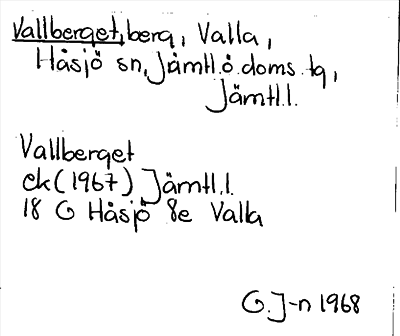 Vallberget, berg, Valla,
Håsjö sn, Jämtl.ö.doms.tg,
Jämtl.l.
Vallberget
ek (1967) Jämtl.l.
18 G Håsjö 8e Valla
G. J-n 1968